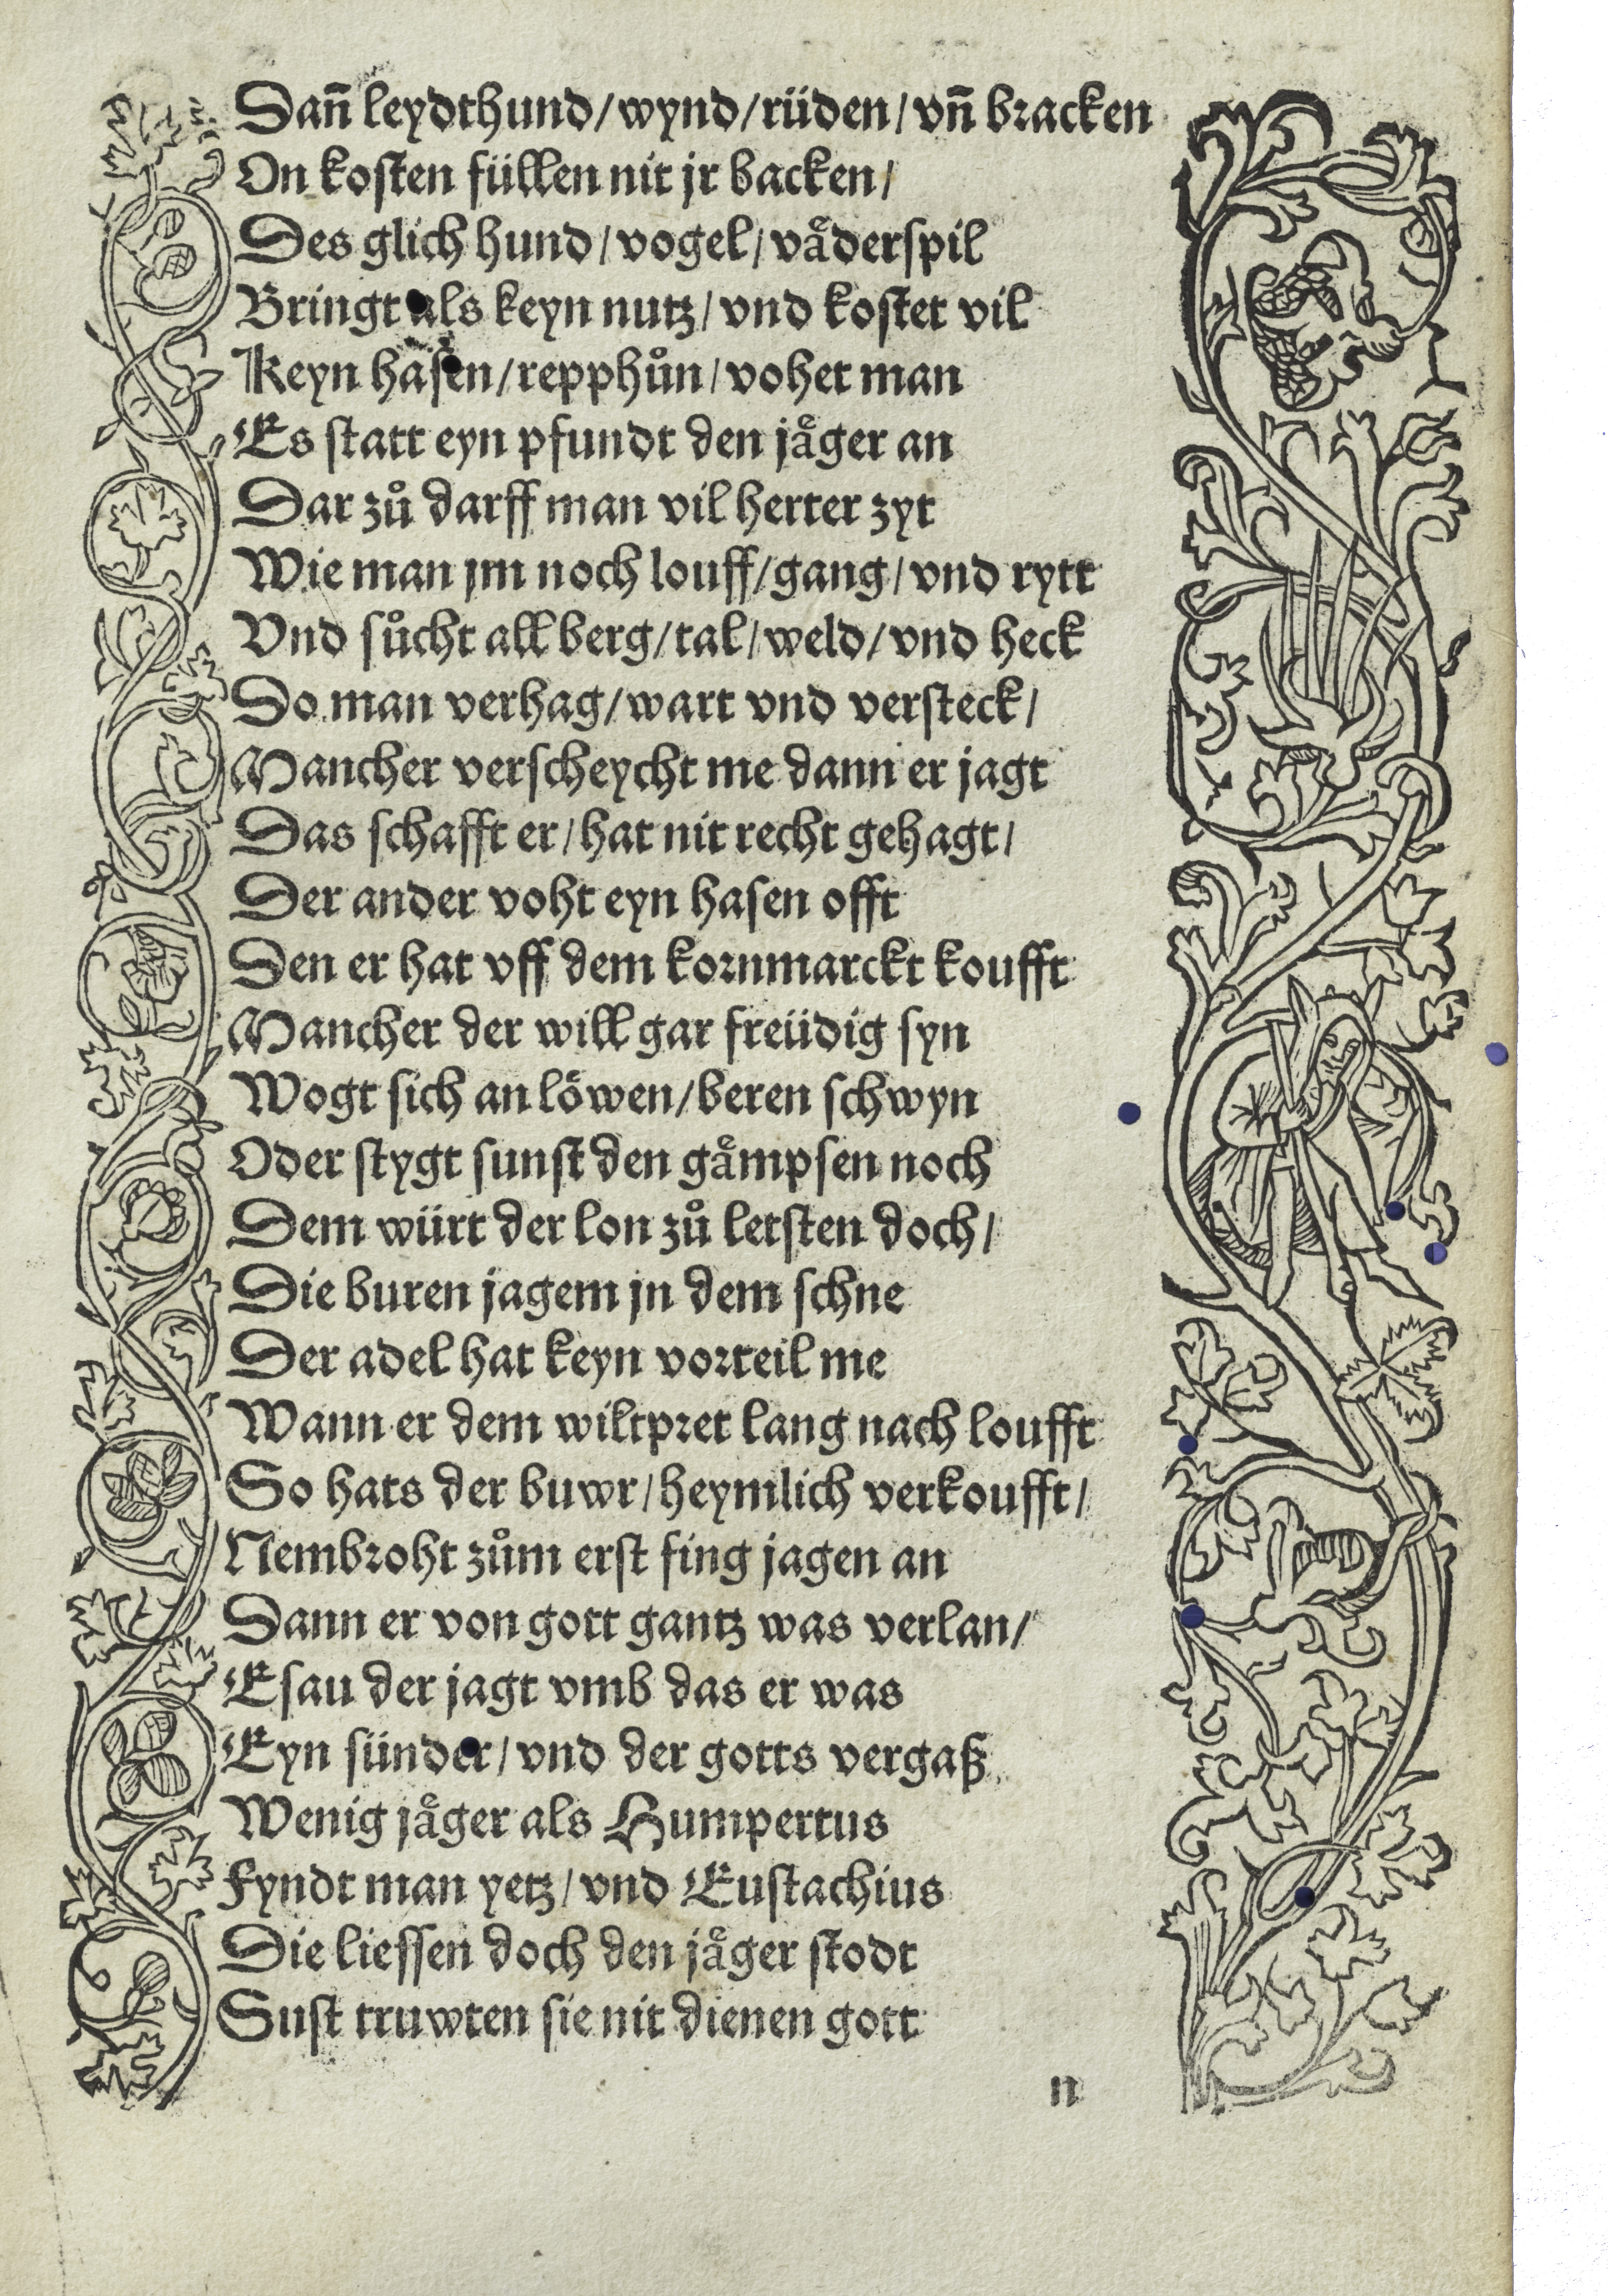 Dañ leydthund/wynd/rüden/vñ bracken
On kosten füllen nit jr backen/
Des glich hund/vogel/vaͤderspil
Bringt als keyn nutz/vnd kostet vil
Keyn hasen/repphuͦn/vohet man
Es statt eyn pfundt den jaͤger an
Dar zuͦ darff man vil herter zyt
Wie man jm noch louff/gang/vnd rytt
Vnd suͦcht all berg/tal/weld/vnd heck
Do man verhag/wart vnd versteck/
Mancher verscheycht me dann er jagt
Das schafft er/hat nit recht gehagt/
Der ander voht eyn hasen offt
Den er hat vff dem kornmarckt koufft
Mancher der will gar freüdig syn
Wogt sich an loͤwen/beren schwyn
Oder stygt sunst den gaͤmpsen noch
Dem würt der lon zuͦ letsten doch/
Die buren jagem jn dem schne
Der adel hat keyn vorteil me
Wann er dem wiltpret lang nach loufft
So hats der buwr/heymlich verkoufft/
Nembroht zuͦm erst fing jagen an
Dann er von gott gantz was verlan/
Esau der jagt vmb das er was
Eyn sünder/vnd der gotts vergaß
Wenig jaͤger als Humpertus
Fyndt man yetz/vnd Eustachius
Die liessen doch den jaͤger stodt
Sust truwten sie nit dienen gott
n